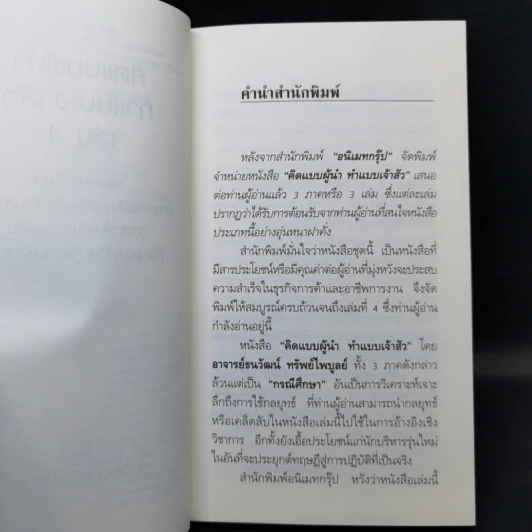 คำนำสำนักพิมพ์
หลังจากสำนักพิมพ์ "อนิเมทกรุ๊ป" จัดพิมพ์
จำหน่ายหนังสือ "คิดแบบผู้นำ ทำแบบเจ้าสัว" เสนอ
ต่อท่านผู้อ่านแล้ว 3 ภาคหรือ 3 เล่ม ซึ่งแต่ละเล่ม
ปรากฏว่าได้รับการต้อนรับจากท่านผู้อ่านที่สนใจหนังสือ
ประเภทนี้อย่างอุ่นหนาฝาคั่ง
สำนักพิมพ์มั่นใจว่าหนังสือชุดนี้ เป็นหนังสือที่
มีสารประโยชน์หรือมีคุณค่าต่อผู้อ่านที่มุ่งหวังจะประสบ
ความสำเร็จในธุรกิจการค้าและอาชีพการงาน จึงจัด
พิมพ์ให้สมบูรณ์ครบถ้วนจนถึงเล่มที่ 4 ซึ่งท่านผู้อ่าน
กำลังอ่านอยู่นี้
หนังสือ "คิดแบบผู้นำ ทำแบบเจ้าสัว" โดย
อาจารย์ธนวัฒน์ ทรัพย์ไพบูลย์ ทั้ง 3 ภาคดังกล่าว
ล้วนแต่เป็น "กรณีศึกษา" อันเป็นการวิเคราะห์เจาะ
ลึกถึงการใช้กลยุทธ์ ที่ท่านผู้อ่านสามารถนำกลยุทธ์
หรือเคล็ดลับในหนังสือเล่มนี้ไปใช้ในการอ้างอิงเชิง
วิชาการ อีกทั้งยังเอื้อประโยชน์แก่นักบริหารรุ่นใหม่
ในอันที่จะประยุกต์ทฤษฎีสู่การปฏิบัติที่เป็นจริง
สำนักพิมพ์อนิเมทกรุ๊ป หวังว่าหนังสือเล่มนี้